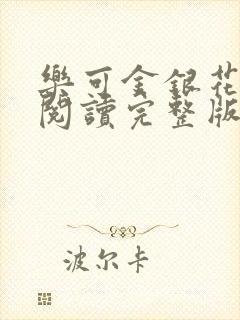 樂可金銀花
閱讀完整版
波尔卡